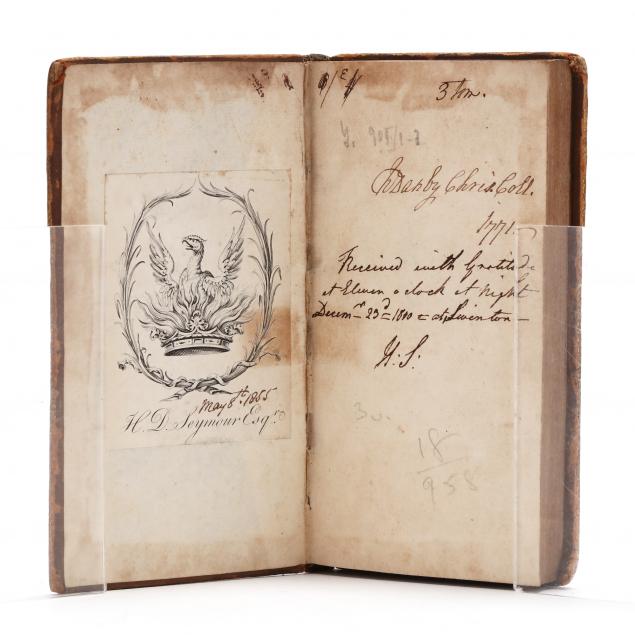 May 8th. 1855
H. D. Seymour Esqre.
3 Tom.
905/1-3
Danby Chris. Coll.
1771
Received with Gratitude
at Eleven o clock at Night
Decemr 23d = 1800 = at Swinton =
H: S:
18
958